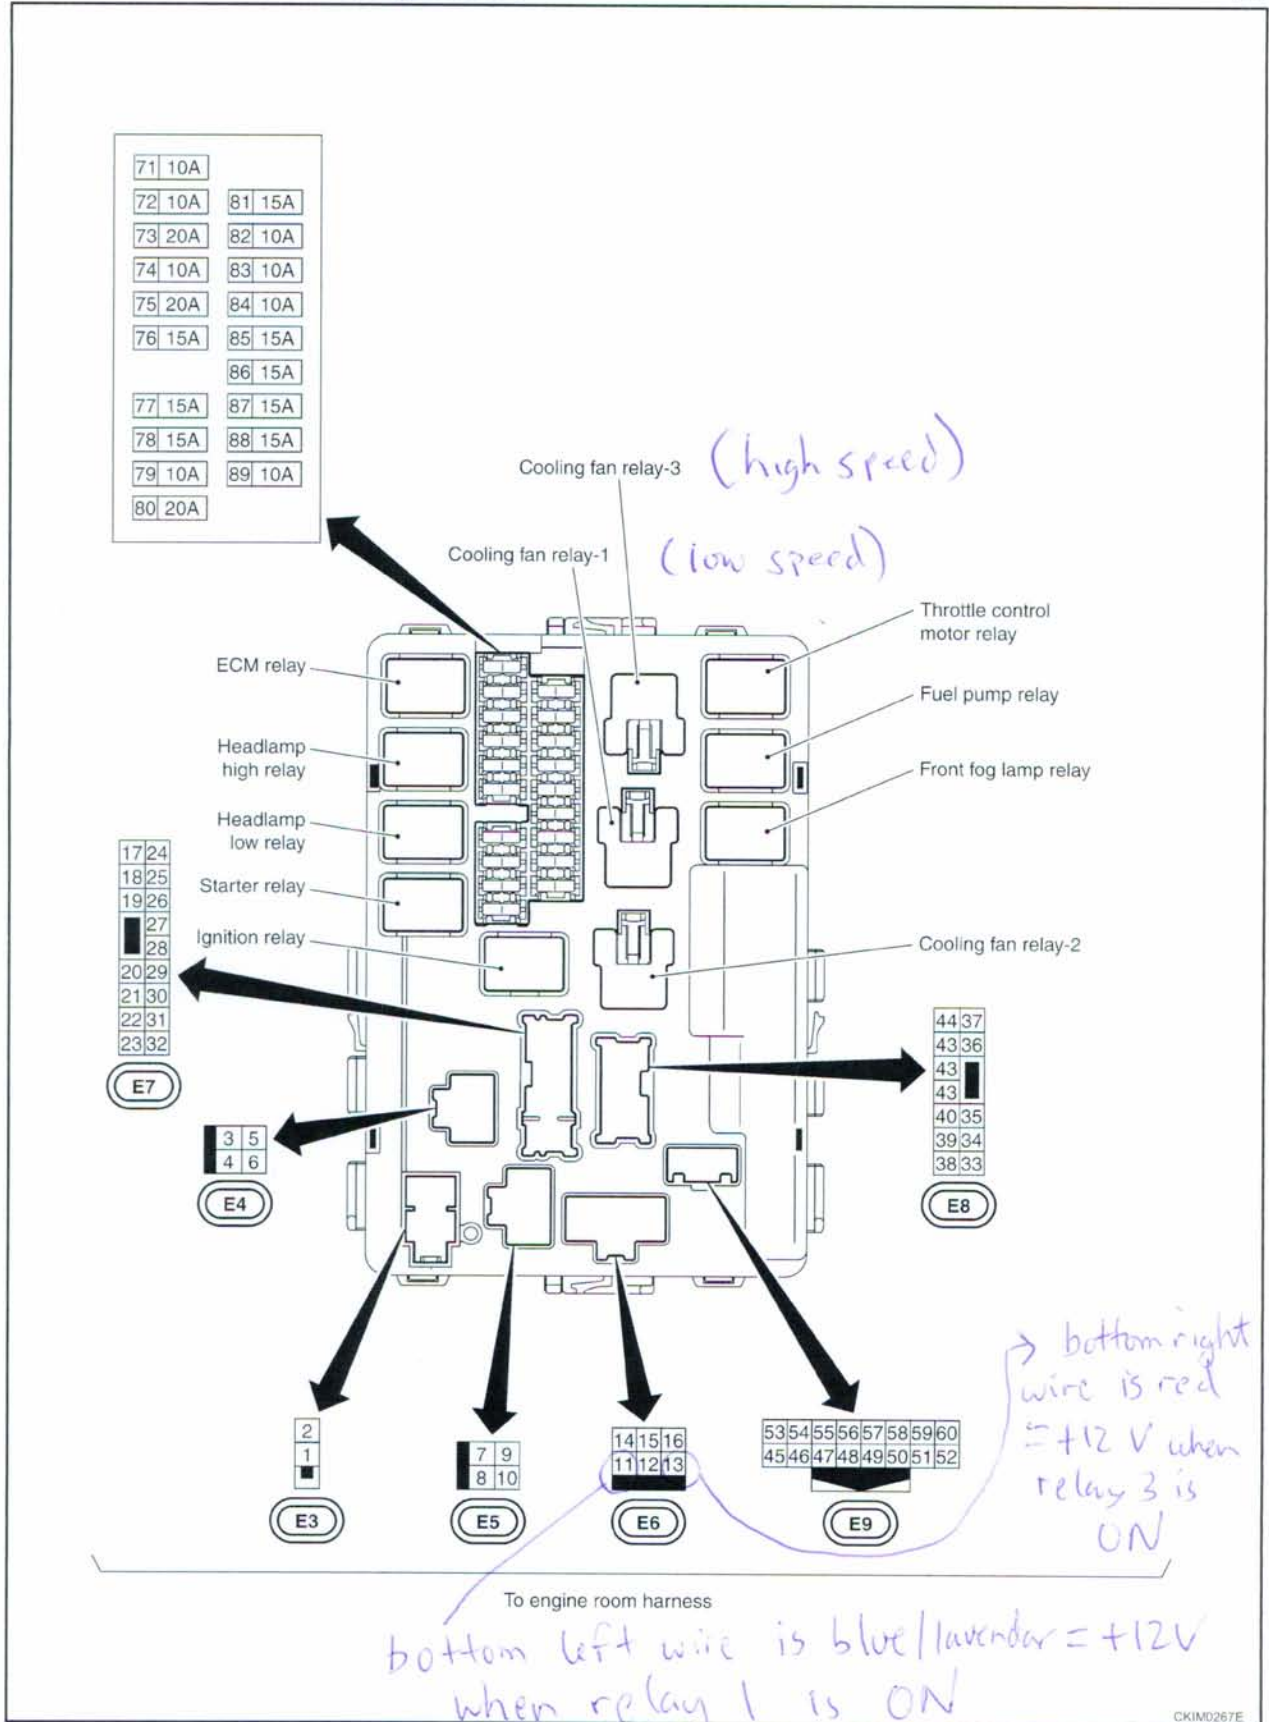 71 10A
72 10A 81 15A
73 20A 82 10A
74 10A 83 10A
75 20A 84 10A
76 15A 85 15A
86 15A
77 15A 87 15A
78 15A 88 15A
79 10A 89 10A
80 20A
Cooling fan relay-3 (high speed)
Cooling fan relay-1 (low speed)
Throttle control
motor relay
ECM relay
Fuel pump relay
Headlamp
high relay
Front fog lamp relay
Headlamp
low relay
Starter relay
Ignition relay
Cooling fan relay-2
17 24
18 25
19 26
27
28
20 29
21 30
22 31
23 32
E7
44 37
43 36
43
43
40 35
39 34
38 33
E8
3 5
4 6
E4
2
1
E3
7 9
8 10
E5
14 15 16
11 12 13
E6
53 54 55 56 57 58 59 60
45 46 47 48 49 50 51 52
E9
bottom right
wire is red
= +12 V when
relay 3 is
ON
To engine room harness
bottom left wire is blue/lavendar = +12V
when relay 1 is ON
CKIM0267E